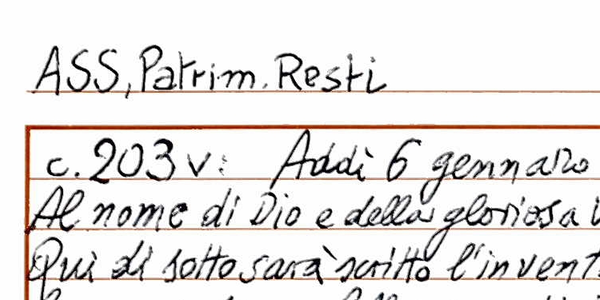 ASS, Patrim. Resti
c. 203 v: Addì 6 gennaro
Al nome di Dio e della gloriosa
Qui di sotto sarà scritto l'invent